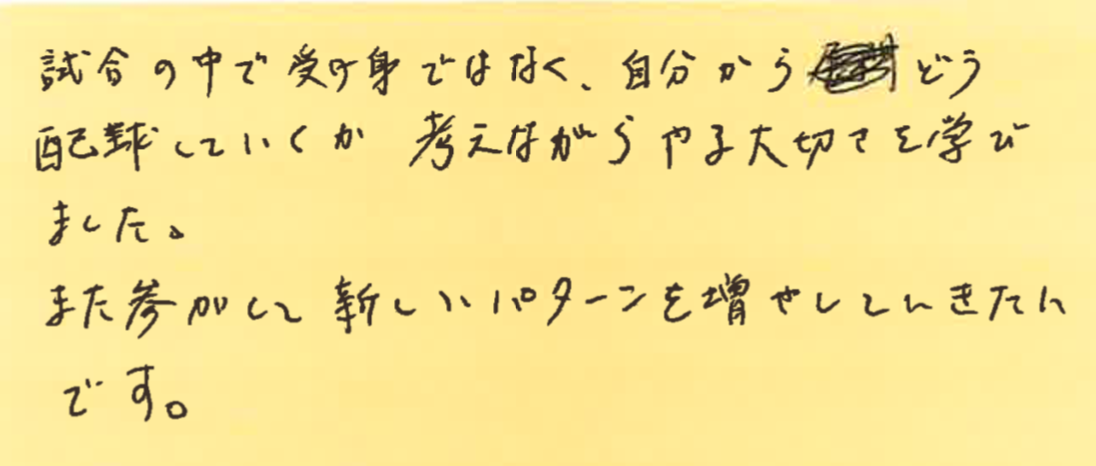 試合の中で受け身ではなく、自分からどう
配球していくか考えながらやる大切さを学び
ました。
また参加して新しいパターンを増やしていきたい
です。